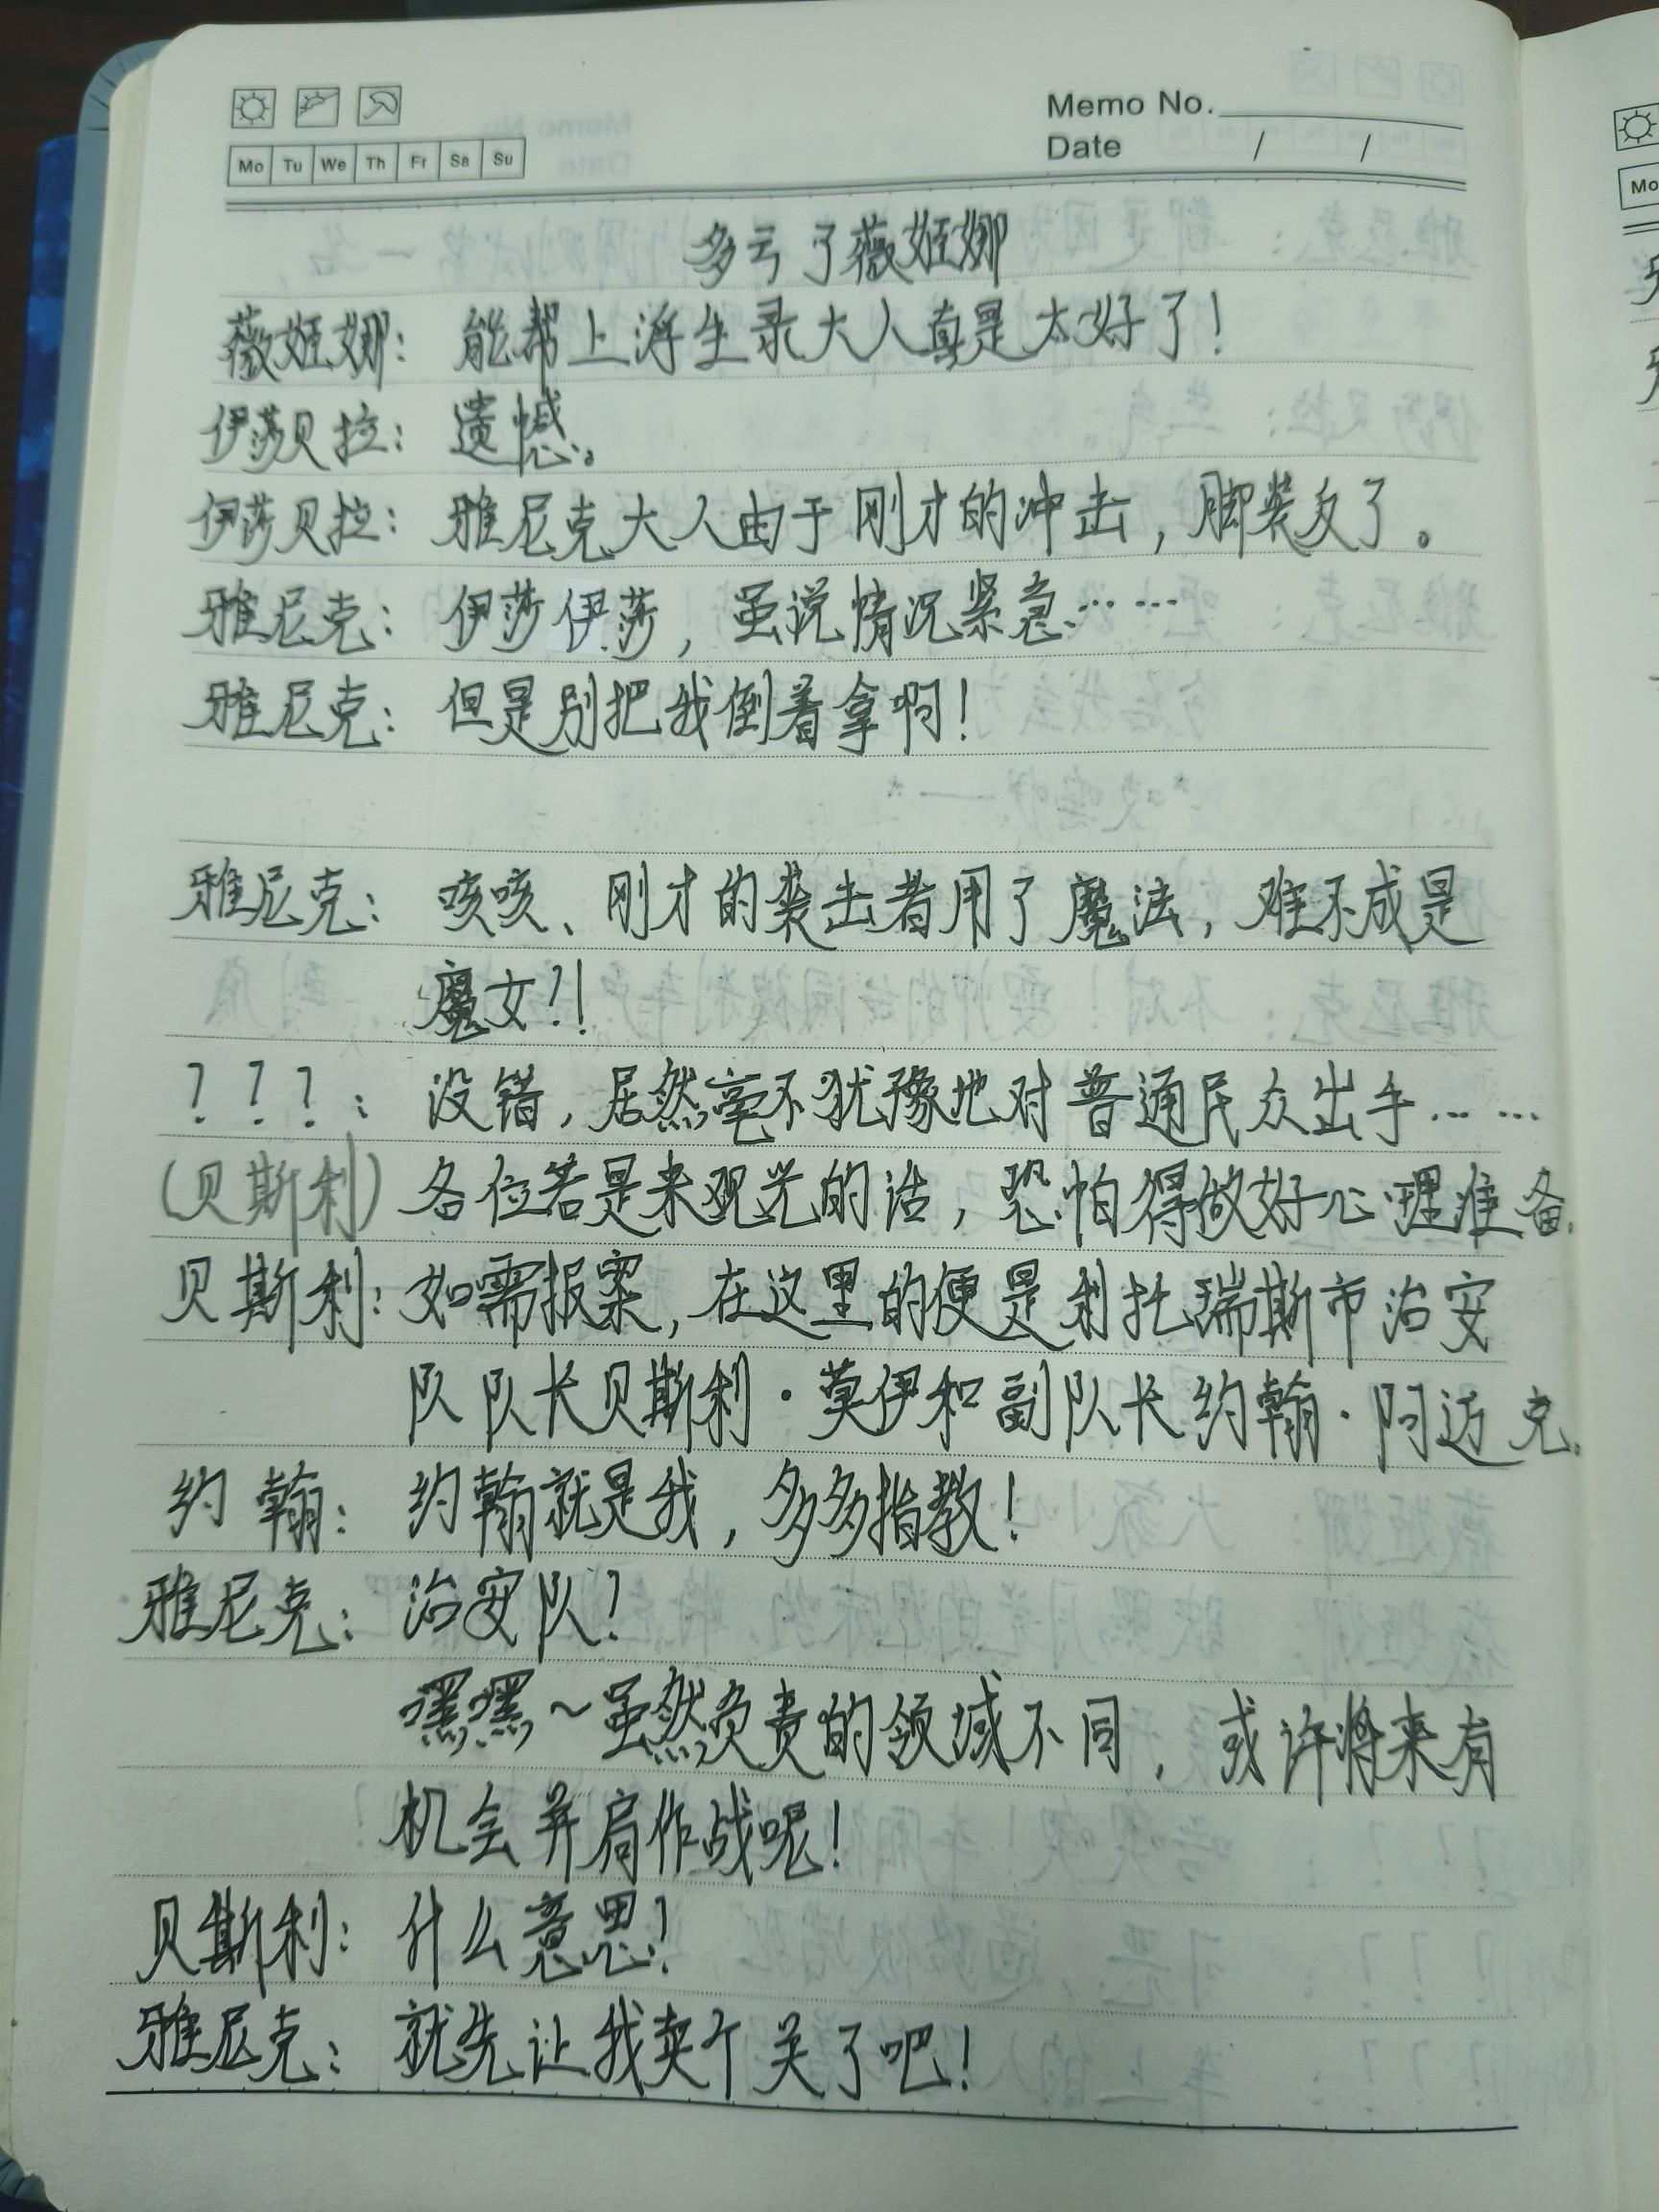 Memo No.
Mo Tu We Th Fr Sa Su
Date / /
多亏了薇姬娜
薇姬娜：能帮上浮生录大人真是太好了！
伊莎贝拉：遗憾。
伊莎贝拉：雅尼克大人由于刚才的冲击，脚装反了。
雅尼克：伊莎伊莎，虽说情况紧急……
雅尼克：但是别把我倒着拿啊！
雅尼克：咳咳、刚才的袭击者用了魔法，难不成是
魔女？！
？？？：没错，居然毫不犹豫地对普通民众出手……
（贝斯利）各位若是来观光的话，恐怕得做好心理准备.
贝斯利：如需报案，在这里的便是利托瑞斯市治安
队队长贝斯利·莫伊和副队长约翰·阿迈克.
约翰：约翰就是我，多多指教！
雅尼克：治安队？
嘿嘿～虽然负责的领域不同，或许将来有
机会并肩作战呢！
贝斯利：什么意思？
雅尼克：就先让我卖个关了吧！
Mo